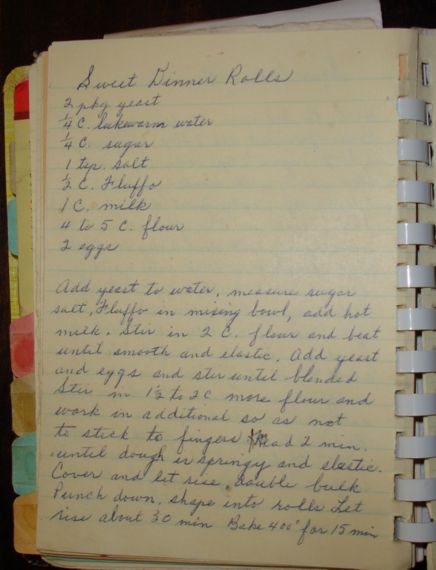 Sweet Dinner Rolls
2 pkg yeast
1/4 C. lukewarm water
1/4 C. sugar
1 tsp. salt
1/2 C. Fluffo
1 C. milk
4 to 5 C. flour
2 eggs
Add yeast to water, measure sugar
salt, Fluffo in mixing bowl, add hot
milk. Stir in 2 C. flour and beat
until smooth and elastic. Add yeast
and eggs and stir until blended
Stir in 1 1/2 to 2 C more flour and
work in additional so as not
to stick to fingers Knead 2 min.
until dough is springy and elastic.
Cover and let rise double bulk
Punch down, shape into rolls Let
rise about 30 min Bake 400° for 15 min